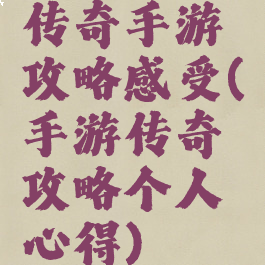 传奇手游
攻略感受(
手游传奇
攻略个人
心得)